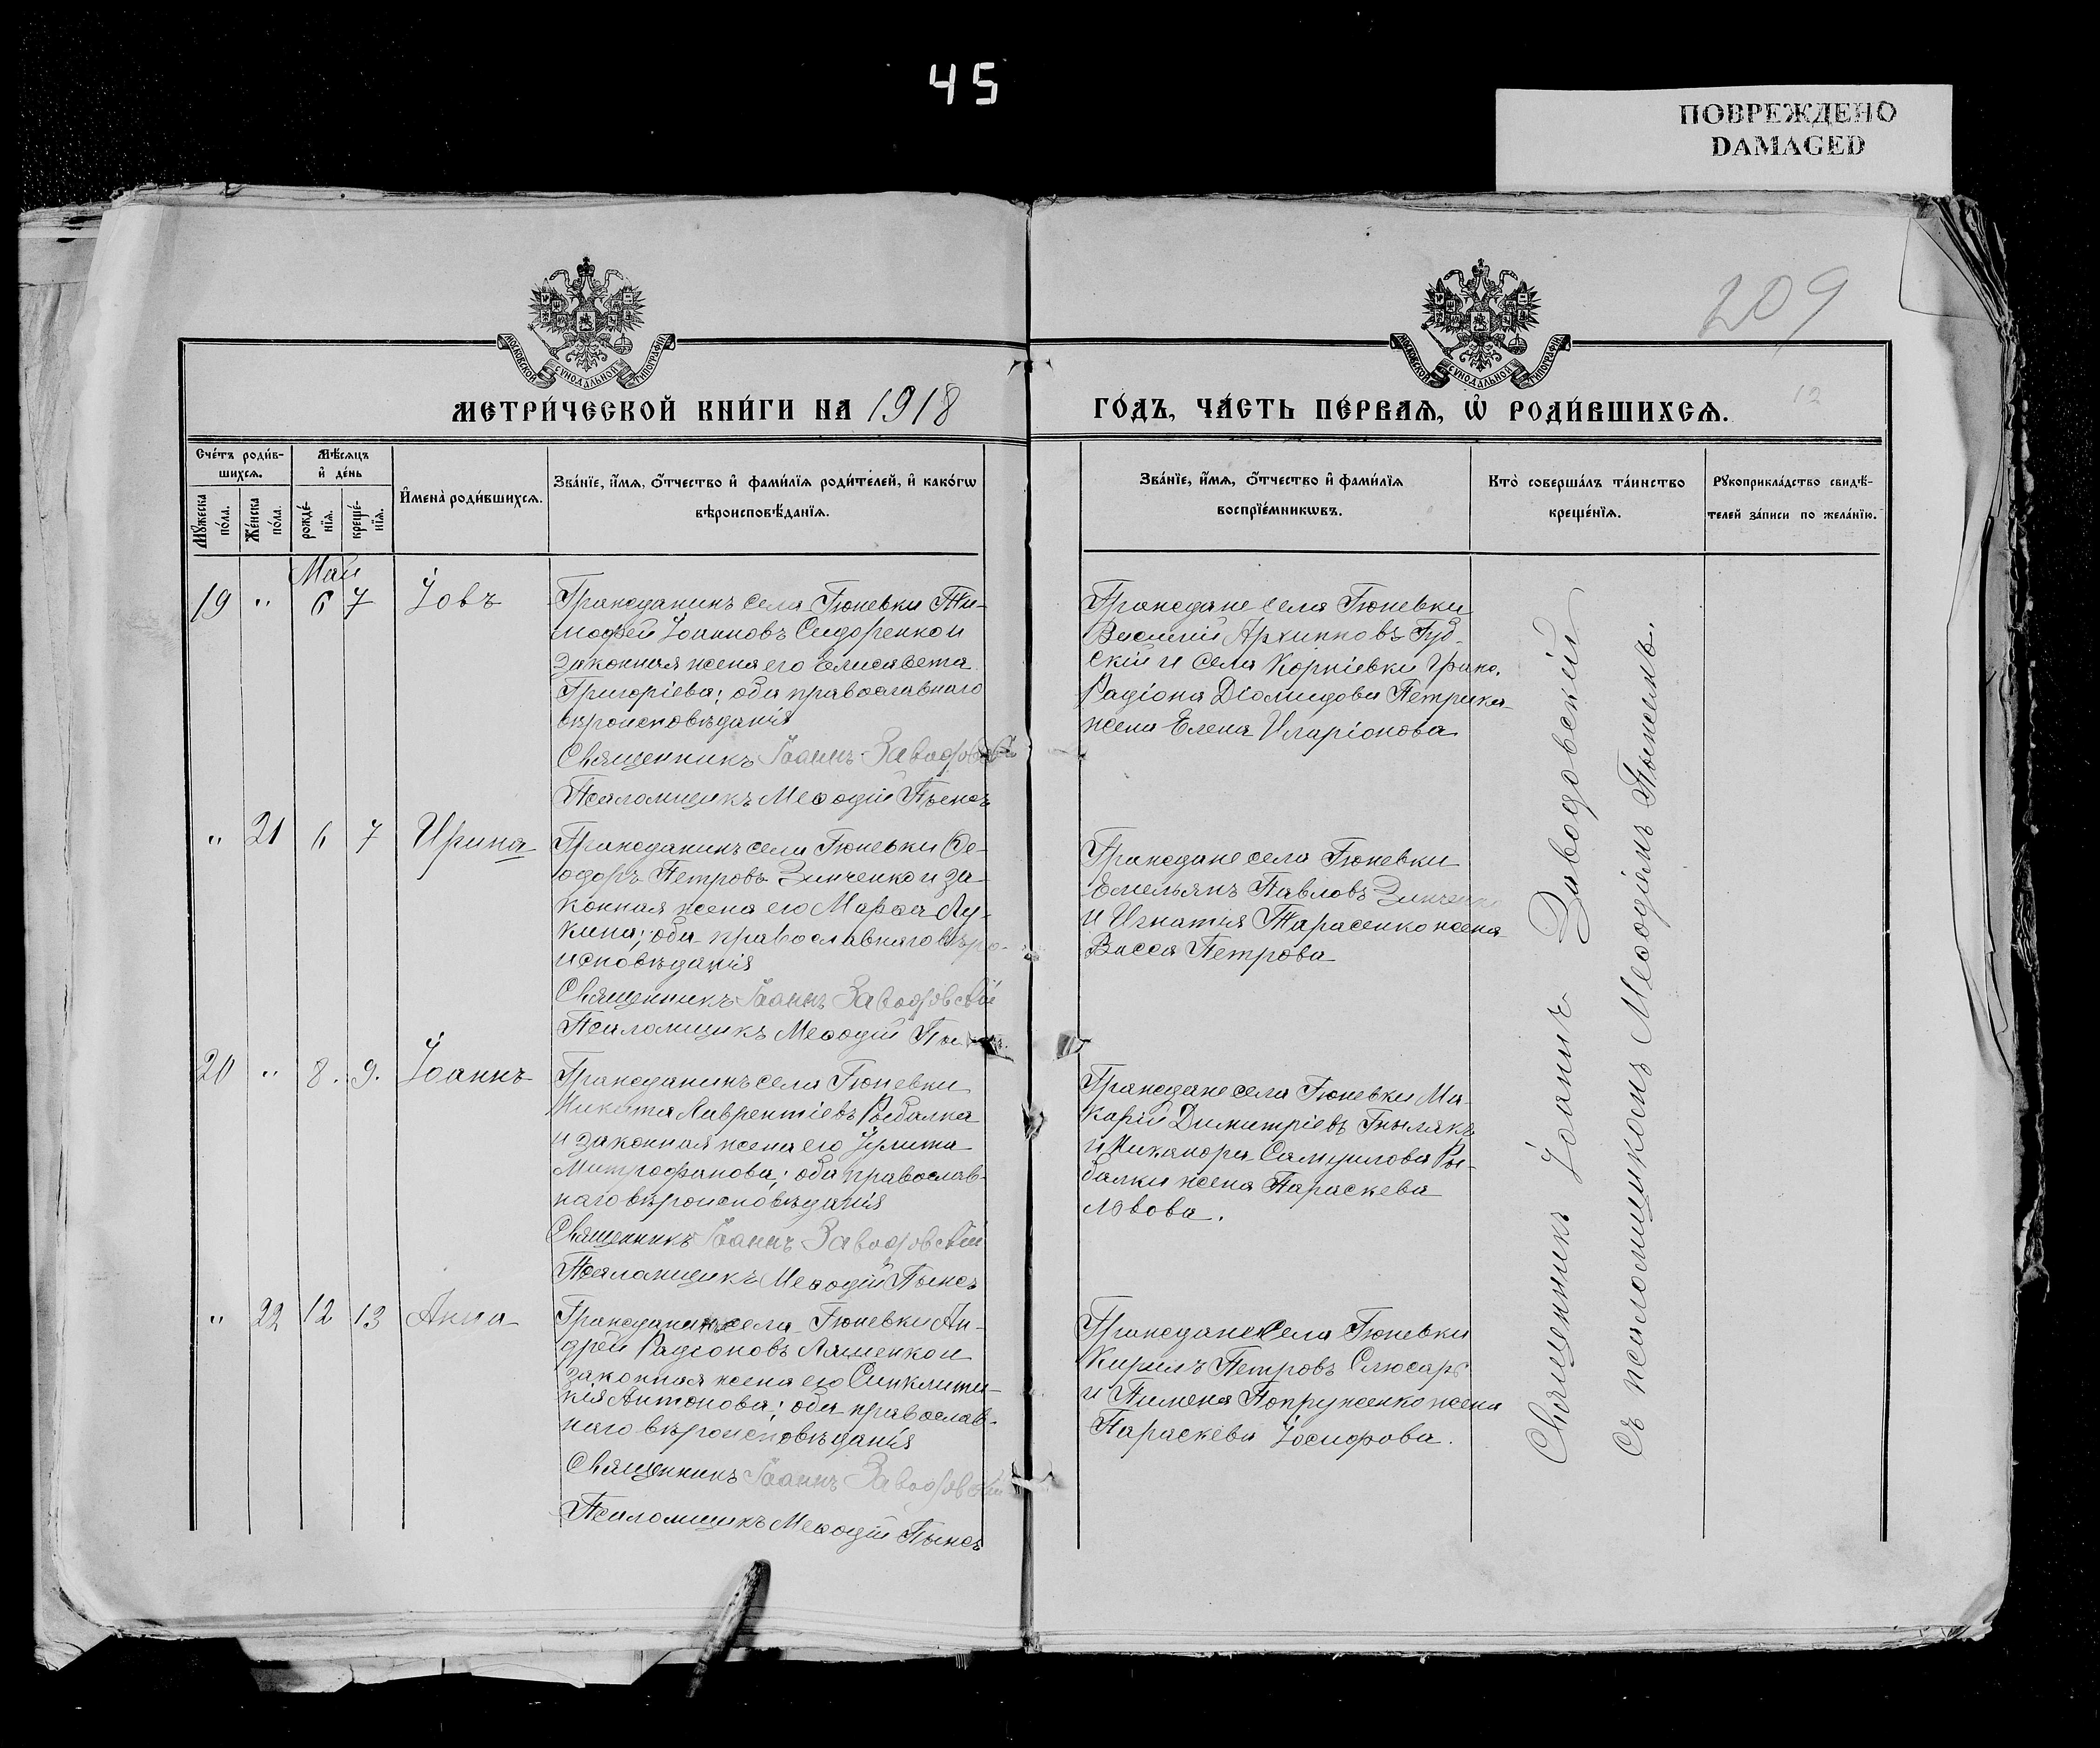 45
ПОВРЕЖДЕНО
DAMAGED
209
12
МОСКОВСКОЙ СУНОДАЛЬНОЙ ТИПОГРАФІИ
МОСКОВСКОЙ СУНОДАЛЬНОЙ ТИПОГРАФІИ
МЕТРИ́ЧЕСКОЙ КНИ́ГИ НА 1918
ГО́ДЪ, ЧА́СТЬ ПЕ́РВАѦ, Ѡ҆ РОДИ́ВШИХСѦ.
Сче́тъ роди́в-
шихсѧ.
Мꙋ́жеска
по́ла.
Же́нска
по́ла.
Мѣ́сѧцъ
и҆ де́нь
рожде́-
нїѧ.
креще́-
нїѧ.
И҆мена̀ роди́вшихсѧ.
Зва́нїе, и҆́мѧ, ѻ҆́тчество и҆ фами́лїѧ роди́телей, и҆ како́гѡ
вѣроисповѣ́данїѧ.
Зва́нїе, и҆́мѧ, ѻ҆́тчество и҆ фами́лїѧ
воспрїе́мникѡвъ.
Кто̀ соверша́лъ та́инство
креще́нїѧ.
Рꙋкоприкла́дство свидѣ́-
телей за́писи по жела́нїю.
Май
19 " 6 7 Іовъ
Гражданинъ села Гюневки Ти-
мофей Іоанновъ Сидоренко и
законная жена его Елисавета
Григоріева; оба православнаго
вѣроисповѣданія
Священникъ Іоаннъ Заводовскій
Псаломщикъ Меѳодій Пыжъ
Граждане села Гюневки
Василій Архипповъ Губ-
скій и села Корніевки граж.
Радіона Діомидова Петрика
жена Елена Иларіонова
" 21 6 7 Ирина
Гражданинъ села Гюневки Ѳе-
одоръ Петровъ Зинченко и за-
конная жена его Марѳа Лу-
кина; оба православнаго вѣро-
исповѣданія
Священникъ Іоаннъ Заводовскій
Псаломщикъ Меѳодій
Граждане села Гюневки
Емельянъ Павловъ Зинченко
и Игнатія Тарасенко жена
Васса Петрова
20 " 8. 9. Іоаннъ
Гражданинъ села Гюневки
Никита Лаврентіевъ Рыбалка
и законная жена его Іулита
Митрофанова; оба православ-
наго вѣроисповѣданія
Священникъ Іоаннъ Заводовскій
Псаломщикъ Меѳодій Пыжъ
Граждане села Гюневки Ма-
карій Димитріевъ Гнылякъ
и Никанора Самуилова Ры-
балки жена Параскева
Львова.
" 22 12 13 Анна
Гражданинъ села Гюневки Ан-
дрей Радіоновъ Ляшенко и
законная жена его Синклити-
кія Антонова; оба православ-
наго вѣроисповѣданія
Священникъ Іоаннъ Заводовскій
Псаломщикъ Меѳодій Пыжъ
Граждане села Гюневки
Кирилъ Петровъ Слюсарь
и Пимена Попруженко жена
Параскева Іосифова.
Священникъ Іоаннъ Заводовскій
съ псаломщикомъ Меѳодіемъ Пыжемъ.